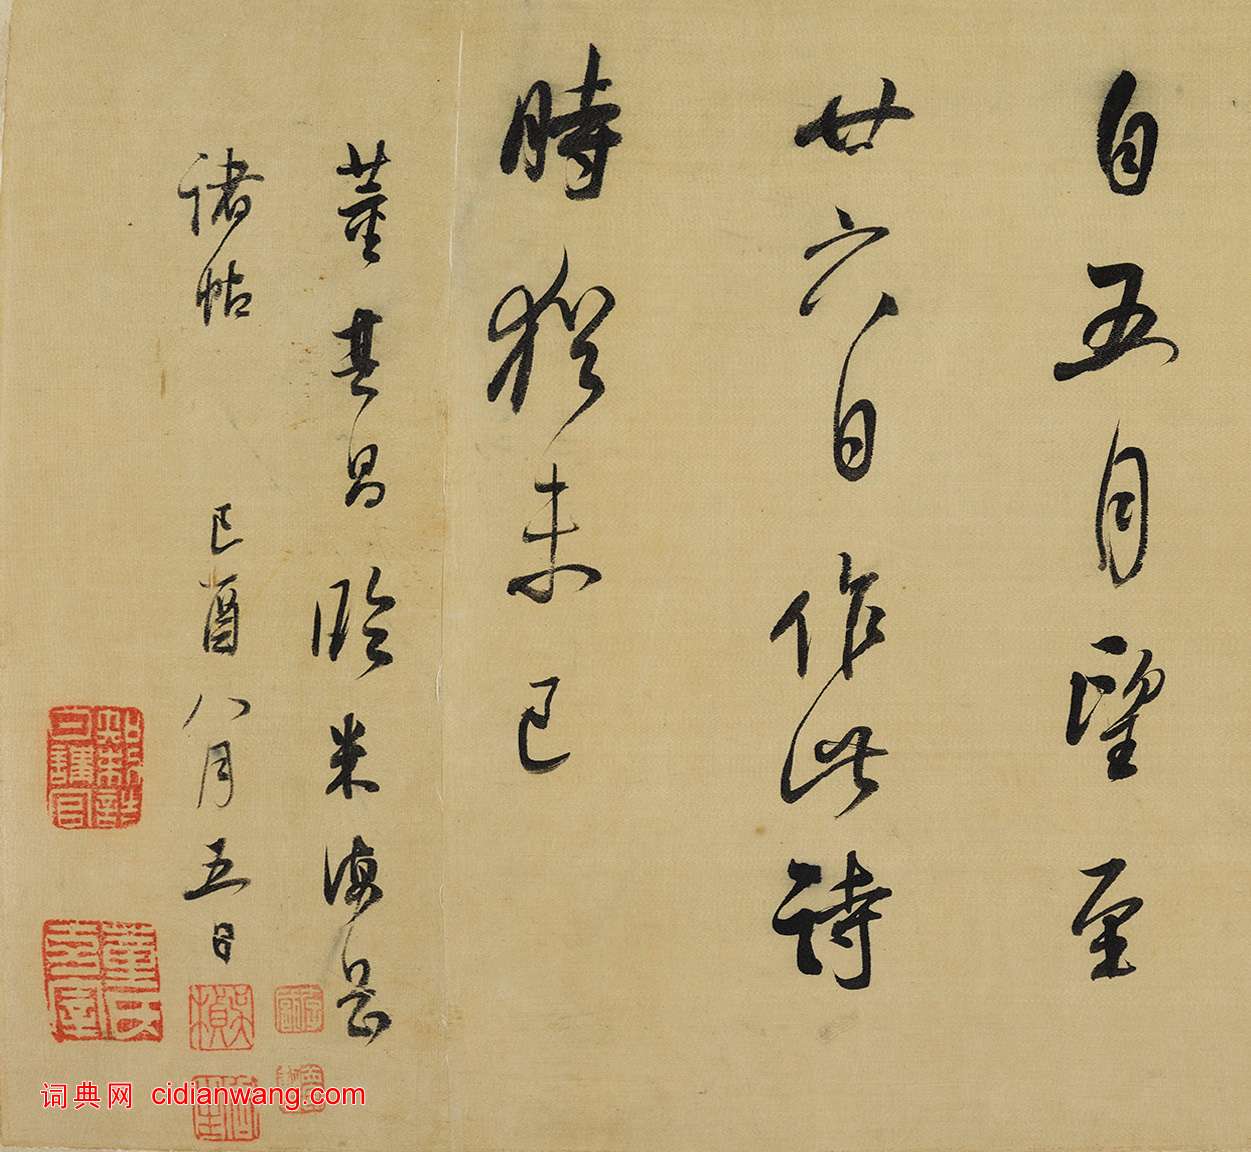 自五月望至
廿六日作此詩
時猶未已
董其昌臨米海岳
諸帖 己酉八月五日
知制誥日講官
董氏玄宰
词典网 cidianwang.com